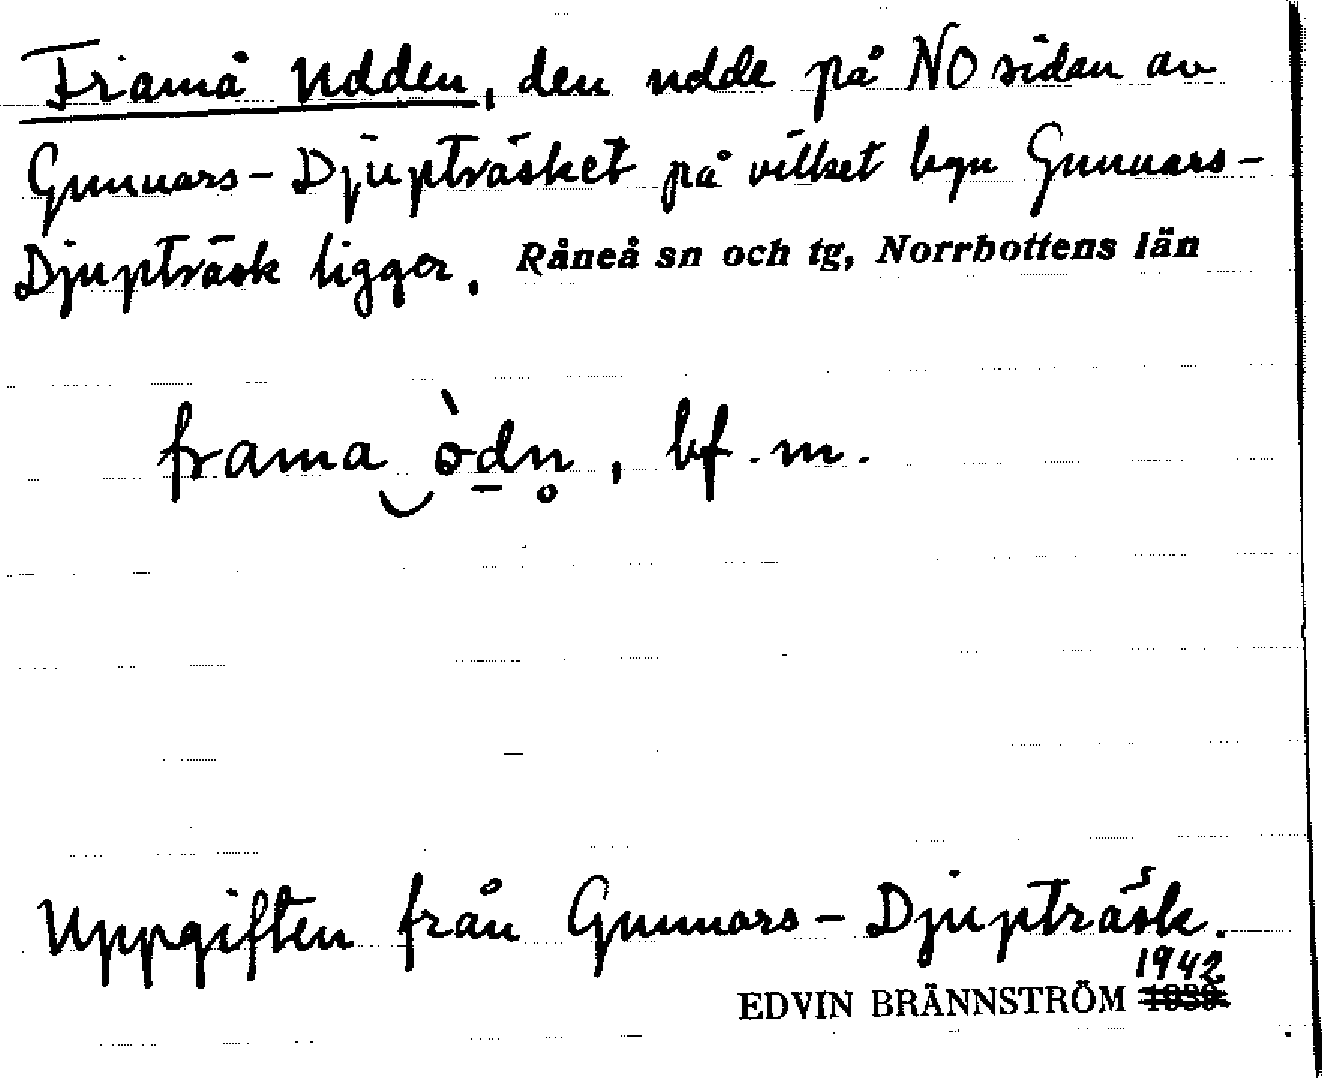 Framå Udden, den udde på NO sidan av
Gunnars-Djupträsket på vilket byn Gunnars-
Djupträsk ligger. Råneå sn och tg, Norrbottens län
frama‿òd̲n̥, bf. m.
Uppgiften från Gunnars-Djupträsk.
1942
EDVIN BRÄNNSTRÖM 1939